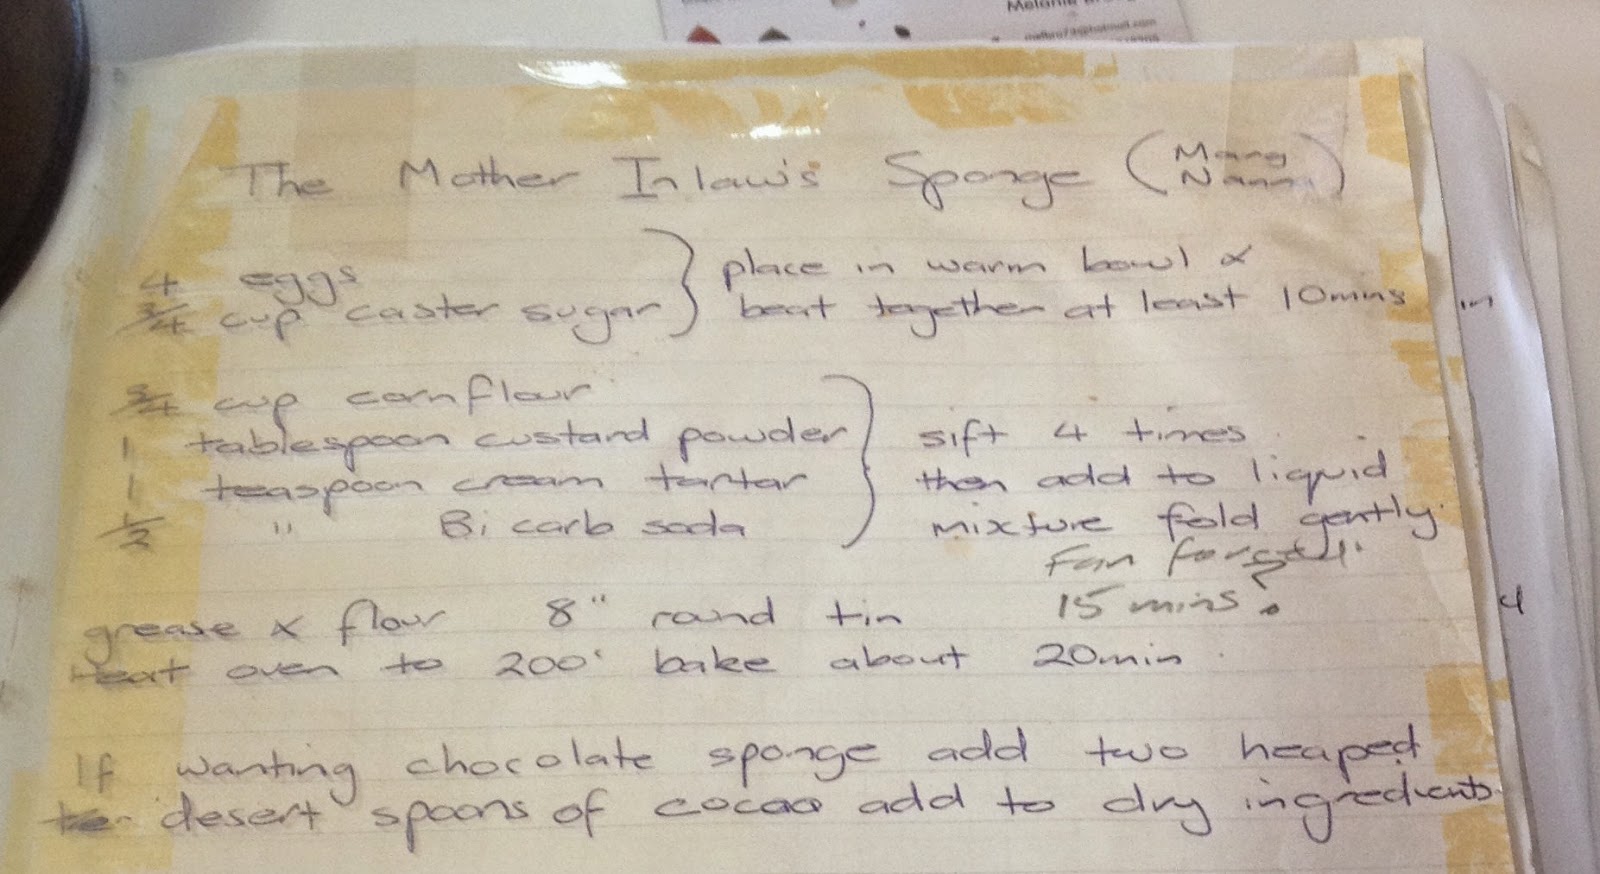 The Mother Inlaw's Sponge (Marg Nanna)
4 eggs
3/4 cup caster sugar } place in warm bowl & beat together at least 10mins
3/4 cup cornflour
1 tablespoon custard powder
1 teaspoon cream tartar
1/2 " Bi carb soda
} sift 4 times
then add to liquid
mixture fold gently.
Fan forced
15 mins?
grease & flour 8" round tin
heat oven to 200° bake about 20min.
If wanting chocolate sponge add two heaped
desert spoons of cocao add to dry ingredients.
Melanie
in
4